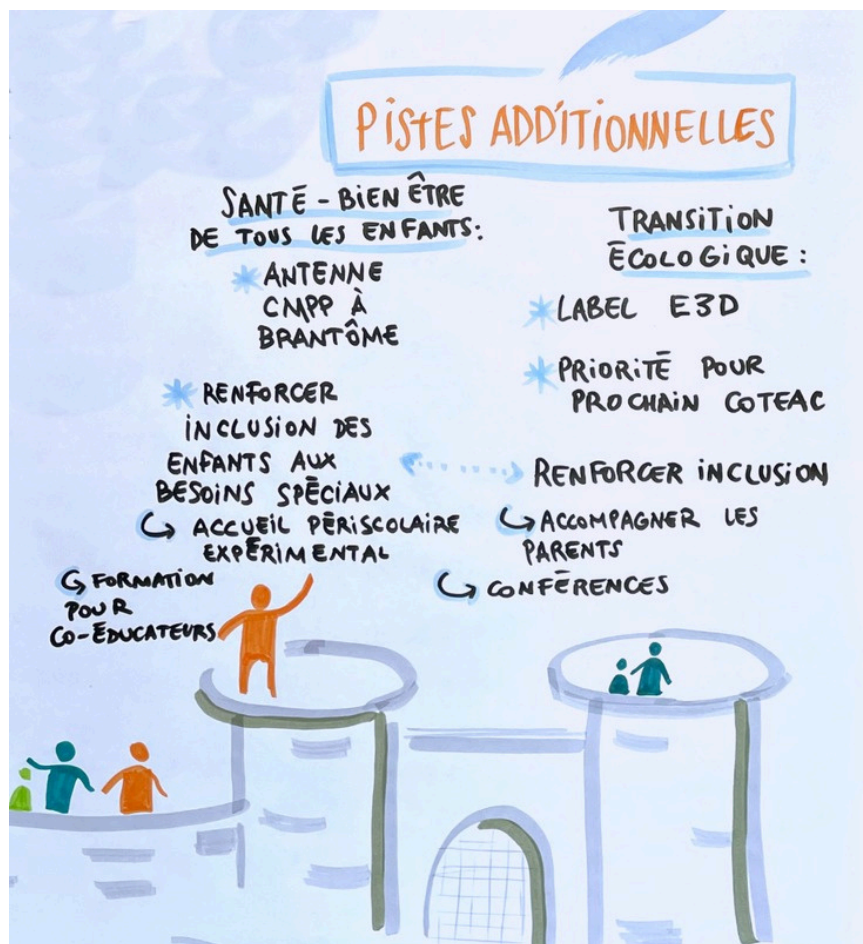 PISTES ADDITIONNELLES
SANTÉ - BIEN ÊTRE
DE TOUS LES ENFANTS:
* ANTENNE
CMPP À
BRANTÔME
* RENFORCER
INCLUSION DES
ENFANTS AUX
BESOINS SPÉCIAUX
↪ ACCUEIL PÉRISCOLAIRE
EXPÉRIMENTAL
↪ FORMATION
POUR
CO-ÉDUCATEURS
TRANSITION
ÉCOLOGIQUE:
* LABEL E3D
* PRIORITÉ POUR
PROCHAIN COTEAC
RENFORCER INCLUSION
↪ ACCOMPAGNER LES
PARENTS
↪ CONFÉRENCES